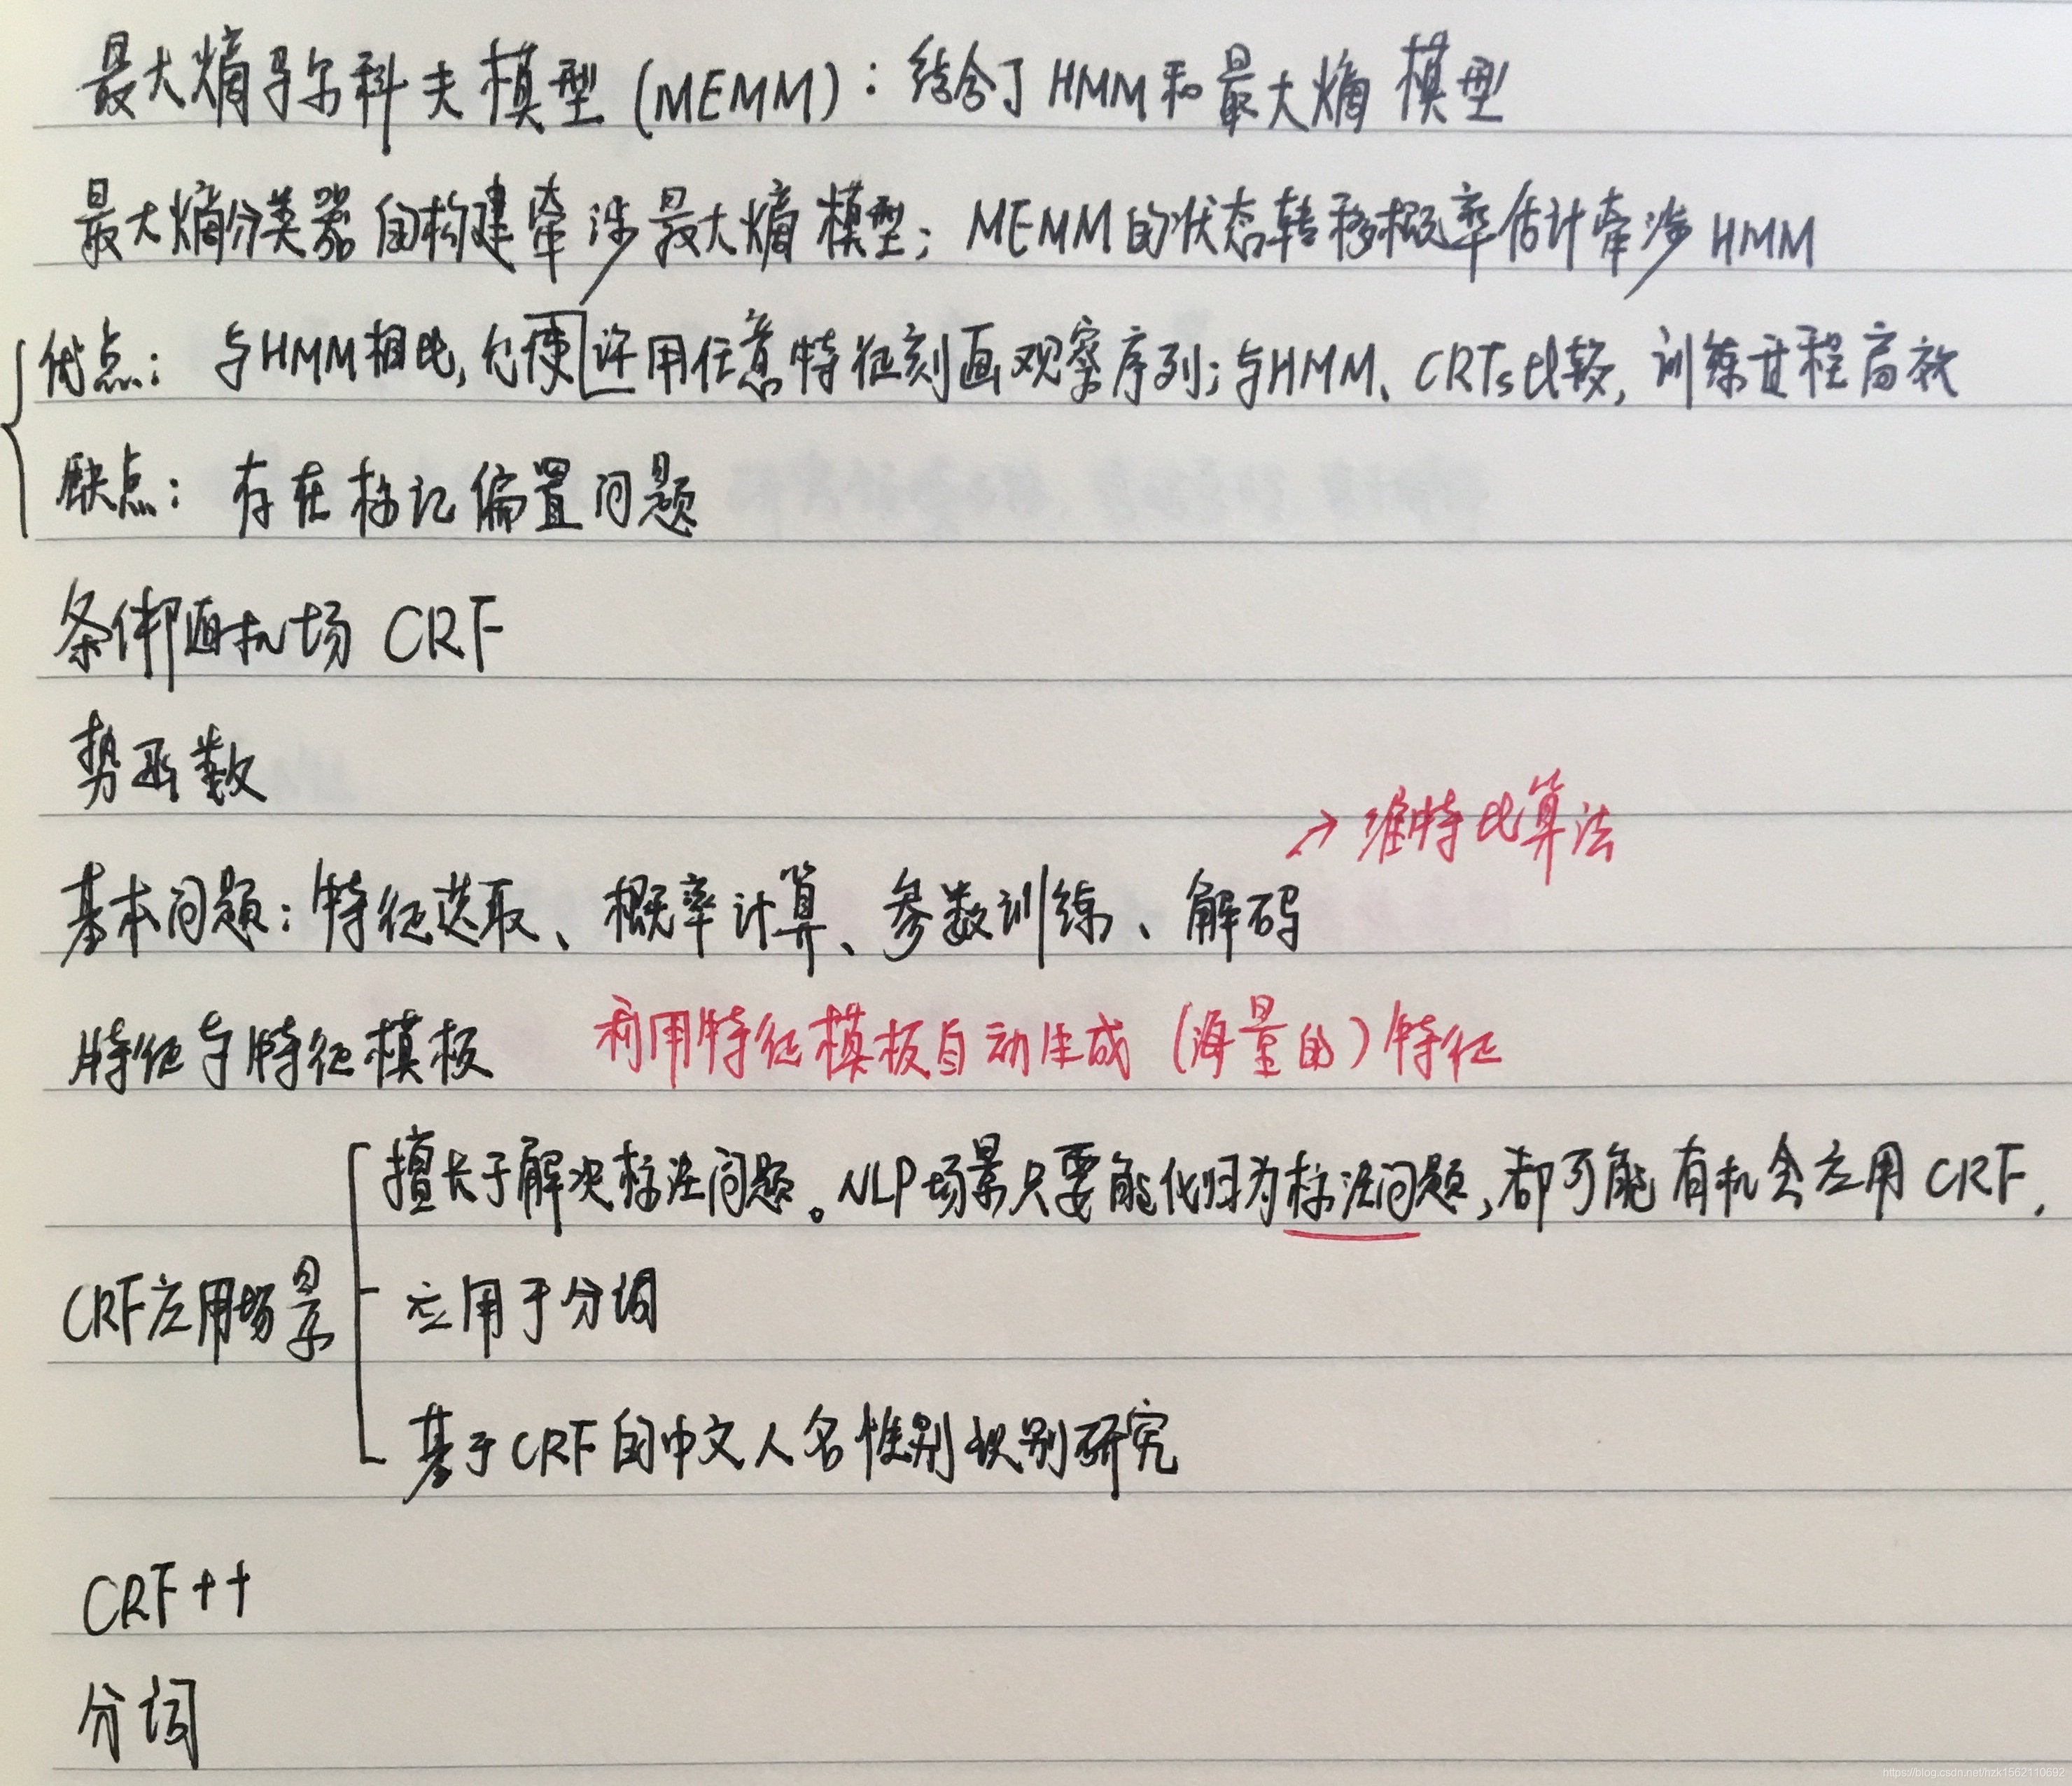 最大熵马尔科夫模型(MEMM)：结合了HMM和最大熵模型
最大熵分类器的构建牵涉最大熵模型；MEMM的状态转移概率估计牵涉HMM
优点：与HMM相比，允许使用任意特征刻画观察序列；与HMM、CRTs比较，训练过程高效
缺点：存在标记偏置问题
条件随机场 CRF
势函数
→维特比算法
基本问题：特征选取、概率计算、参数训练、解码
特征与特征模板 利用特征模板自动生成(海量的)特征
擅长于解决标注问题。NLP场景只要能化归为标注问题，都可能有机会应用CRF.
CRF应用场景
应用于分词
基于CRF的中文人名性别识别研究
CRF++
分词
https://blog.csdn.net/hzk1562110692